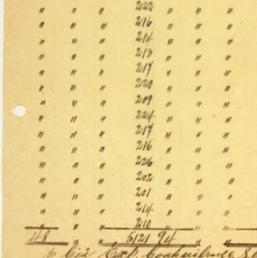 " " " 222 " " "
" " " 216 " " "
" " " 214 " " "
" " " 213 " " "
" " " 217 " " "
" " " 220 " " "
" " " 209 " " "
" " " 224 " " "
" " " 217 " " "
" " " 216 " " "
" " " 226 " " "
" " " 202 " " "
" " " 201 " " "
" " " 214 " " "
" " " 210 " " "
48 " " 5121 94 " "